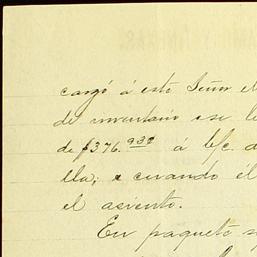 cargó á este Señor el
de inventario ese
de $376.93½ á b/c. d
ella; e cuando él
el asiento.
En paquete s